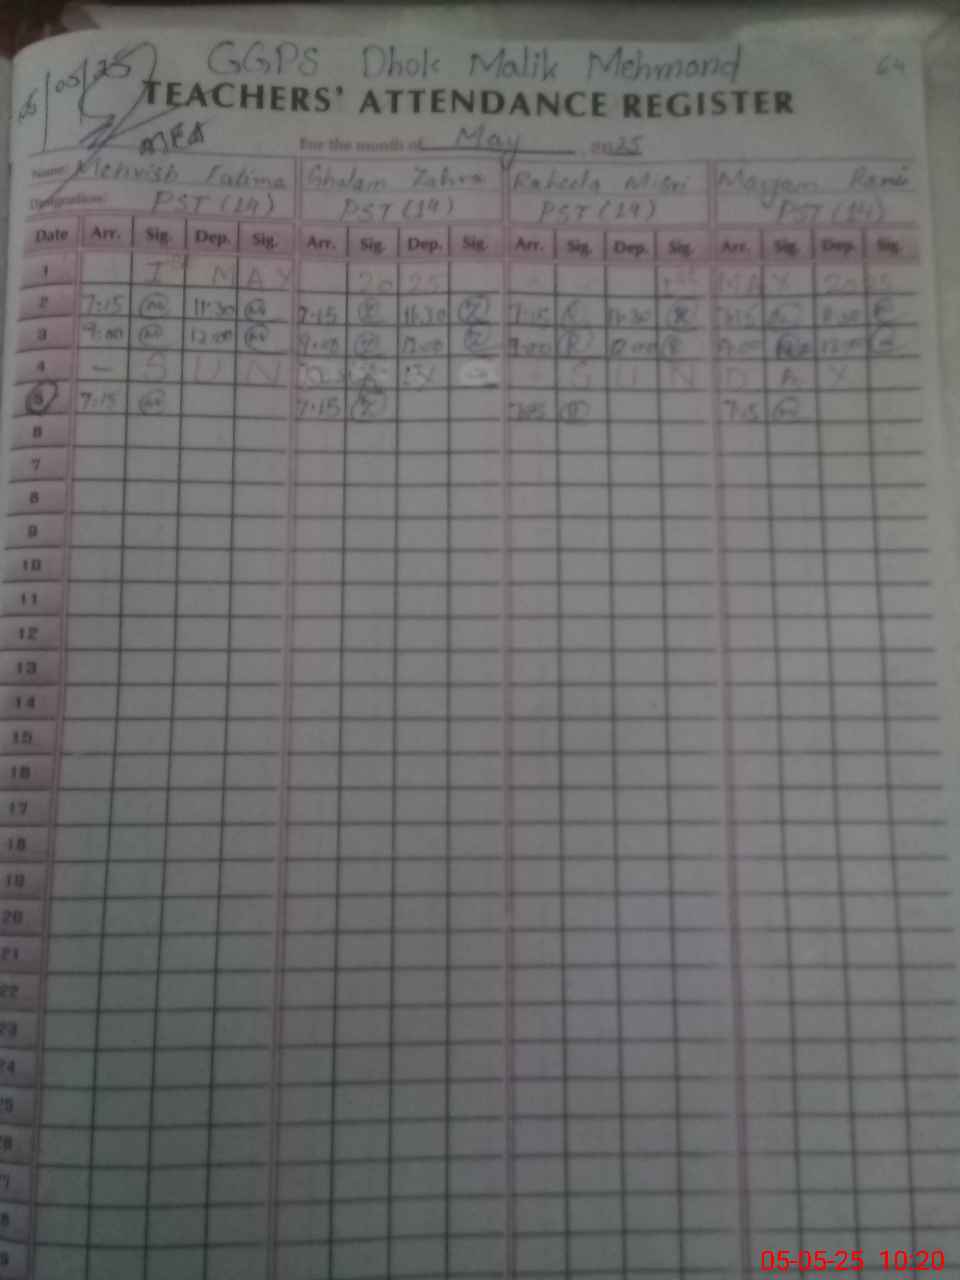 GGPS Dhok Malik Mehmond 64
05/05/25
TEACHERS' ATTENDANCE REGISTER
MEA
For the month of May 2025
Name: Mehvish Fatima Gholam Zahra Raheela Misri Maryam
Designation: PST (14) PST (14) PST (14) PST (14)
Date Arr. Sig. Dep. Sig. Arr. Sig. Dep. Sig. Arr. Sig. Dep. Sig. Arr. Sig. Dep. Sig.
1 1st MAY 2025 1st MAY 2025
2 7:15 11:30 7:15 11:30 7:15 11:30 7:15 11:30
3 9:00 12:00 9:00 12:00 9:00 12:00 9:00 12:00
4 - S U N D A Y - - S U N D A Y
5 7:15 7:15 7:15 7:15
6
7
8
9
10
11
12
13
14
15
16
17
18
19
20
21
22
23
24
25
26
05-05-25 10:20